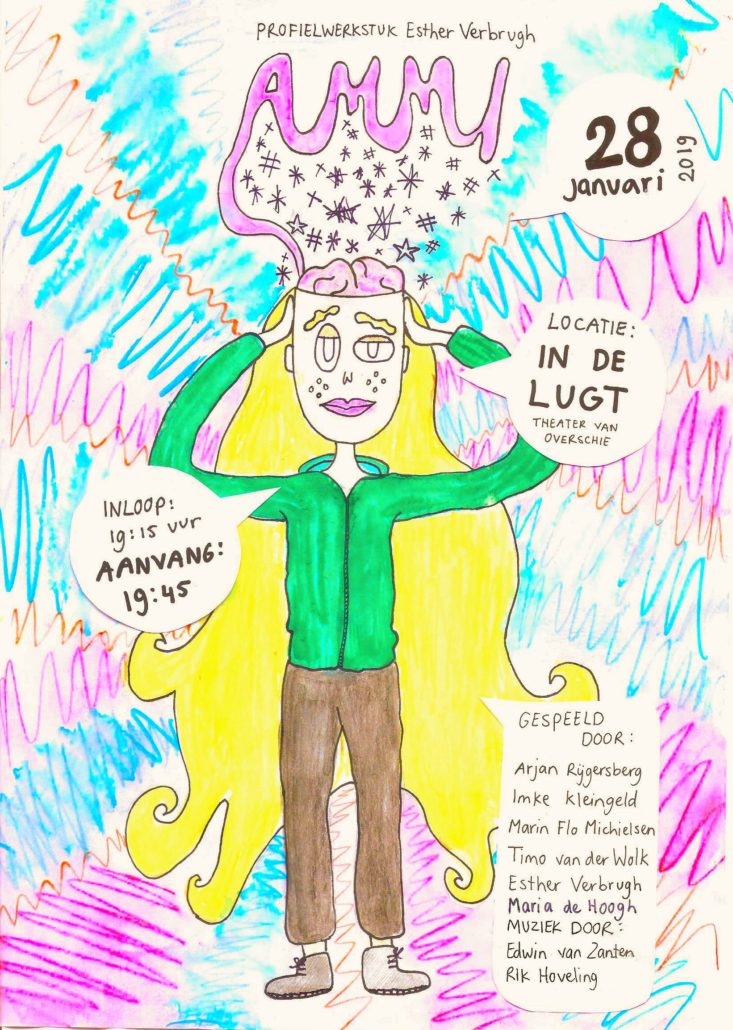 PROFIELWERKSTUK Esther Verbrugh
AMMI
28
januari
2019
LOCATIE:
IN DE
LUGT
THEATER VAN
OVERSCHIE
INLOOP:
19:15 uur
AANVANG:
19:45
GESPEELD
DOOR:
Arjan Rijgersberg
Imke Kleingeld
Marin Flo Michielsen
Timo van der Wolk
Esther Verbrugh
Maria de Hoogh
MUZIEK DOOR:
Edwin van Zanten
Rik Hoveling